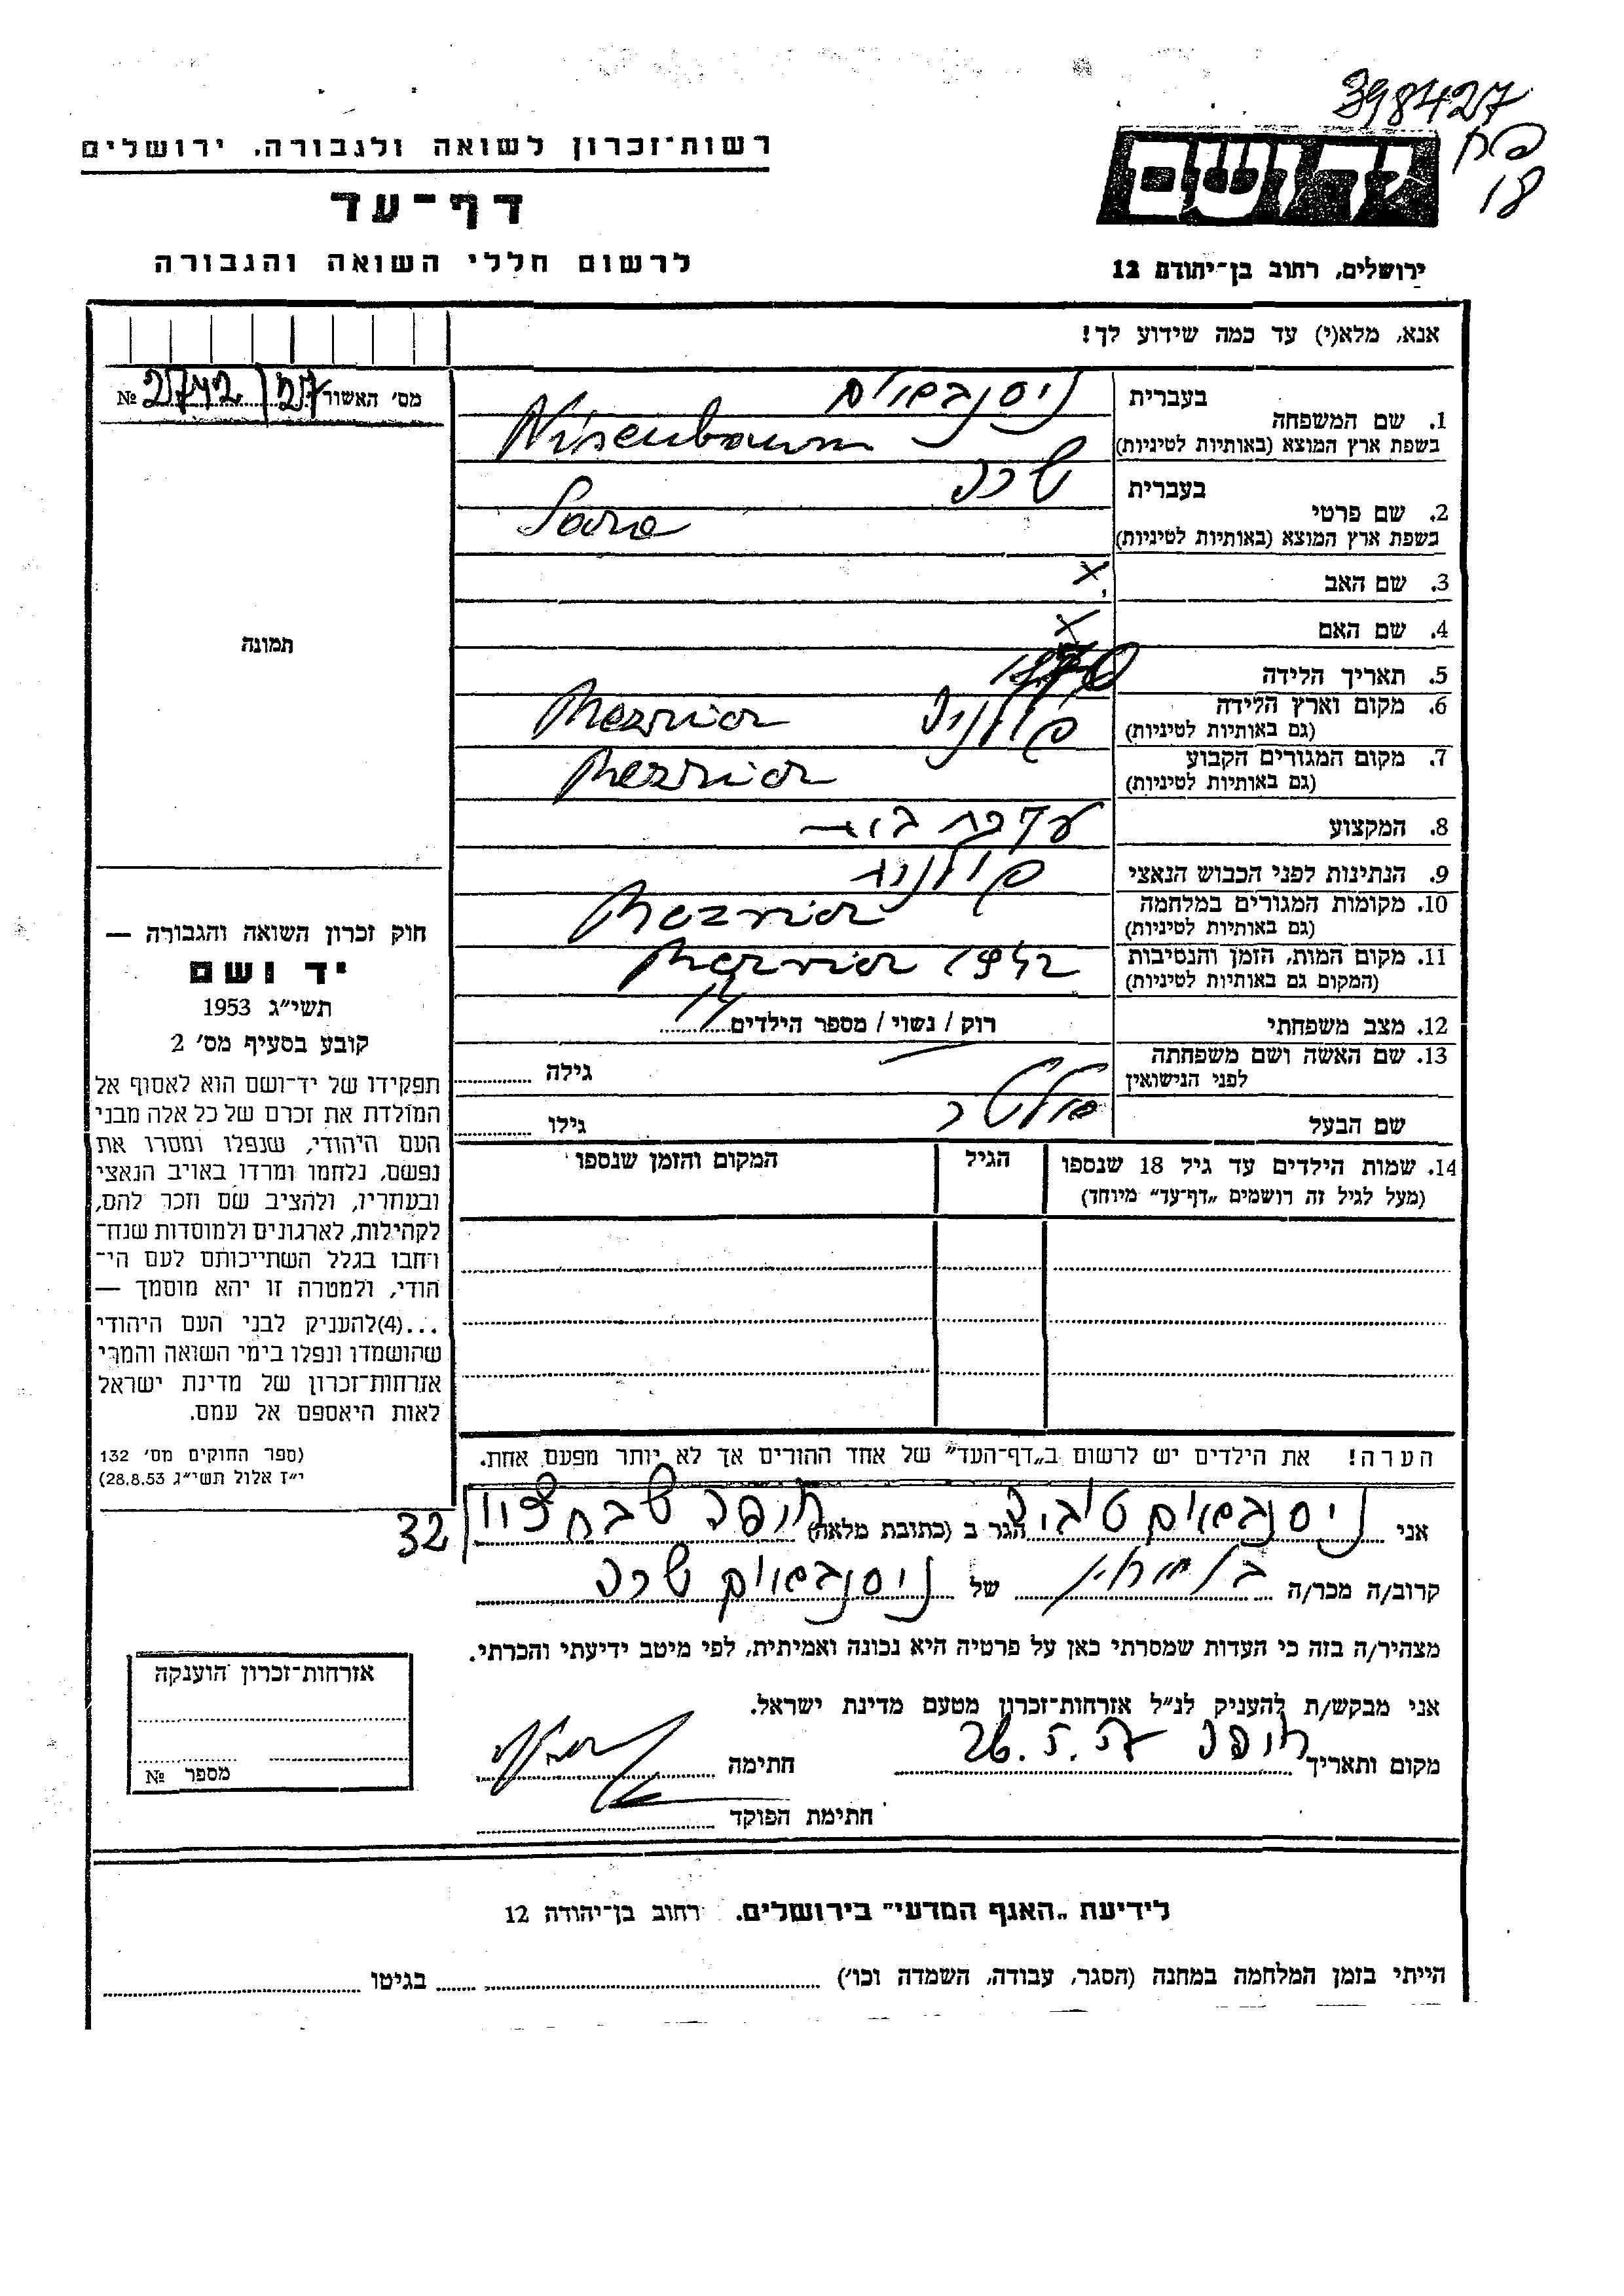 398427
רשות־זכרון לשואה ולגבורה. ירושלים
דף־עד
לרשום חללי השואה והגבורה
יד ושם
18
ירושלים, רחוב בן־יהודה 12
אנא, מלא(י) עד כמה שידוע לך!
מס׳ האשור № 2742/27
1. שם המשפחה
בעברית ניסנבאום
בשפת ארץ המוצא (באותיות לטיניות) Nisenbaum
2. שם פרטי
בעברית שרה
בשפת ארץ המוצא (באותיות לטיניות) Sara
3. שם האב x
4. שם האם x
5. תאריך הלידה
6. מקום וארץ הלידה
(גם באותיות לטיניות) פולניה Mezricz
7. מקום המגורים הקבוע
(גם באותיות לטיניות) Mezricz
8. המקצוע עקרת בית
9. הנתינות לפני הכבוש הנאצי פולנית
10. מקומות המגורים במלחמה
(גם באותיות לטיניות) Mezricz
11. מקום המות, הזמן והנסיבות
(המקום גם באותיות לטיניות) Mezricz 1942
12. מצב משפחתי רוק / נשוי / מספר הילדים
13. שם האשה ושם משפחתה
לפני הנישואין
גילה
שם הבעל
גילו
14. שמות הילדים עד גיל 18 שנספו
(מעל לגיל זה רושמים „דף־עד״ מיוחד)
הגיל
המקום והזמן שנספו
תמונה
חוק זכרון השואה והגבורה —
יד ושם
תשי״ג 1953
קובע בסעיף מס׳ 2
תפקידו של יד־ושם הוא לאסוף אל
המולדת את זכרם של כל אלה מבני
העם היהודי, שנפלו ומסרו את
נפשם, נלחמו ומרדו באויב הנאצי
ובעוזריו, ולהציב שם וזכר להם,
לקהילות, לארגונים ולמוסדות שנח־
רבו בגלל השתייכותם לעם הי־
הודי, ולמטרה זו יהא מוסמך —
...(4)להעניק לבני העם היהודי
שהושמדו ונפלו בימי השואה והמרי
אזרחות־זכרון של מדינת ישראל
לאות היאספם אל עמם.
(ספר החוקים מס׳ 132
י״ז אלול תשי״ג 28.8.53)
הערה! את הילדים יש לרשום ב„דף־העד״ של אחד ההורים אך לא יותר מפעם אחת.
אני ניסנבאום טובה הגר ב (כתובת מלאה) חיפה שבתאי 32
קרוב/ה מכר/ה של ניסנבאום שרה
מצהיר/ה בזה כי העדות שמסרתי כאן על פרטיה היא נכונה ואמיתית, לפי מיטב ידיעתי והכרתי.
אני מבקש/ת להעניק לנ״ל אזרחות־זכרון מטעם מדינת ישראל.
מקום ותאריך חיפה 26.5.57 חתימה
חתימת הפוקד
אזרחות־זכרון הוענקה
מספר №
לידיעת „האגף המדעי״ בירושלים. רחוב בן־יהודה 12
הייתי בזמן המלחמה במחנה (הסגר, עבודה, השמדה וכו׳) בגיטו